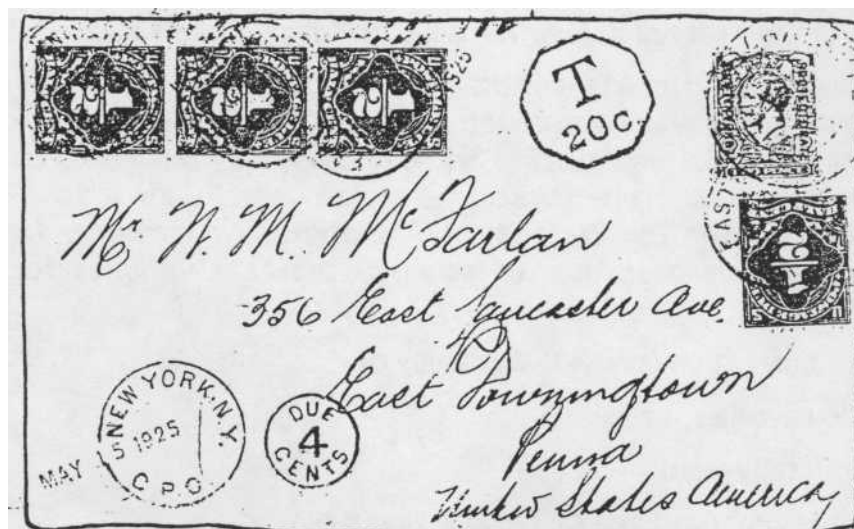 1925
T
20c
EAST
Mr. N. M. McFarlan
356 East Lancaster Ave.
East Downingtown
Penna
United States America
NEW YORK, N.Y.
MAY 5 1925
DUE
4
CENTS